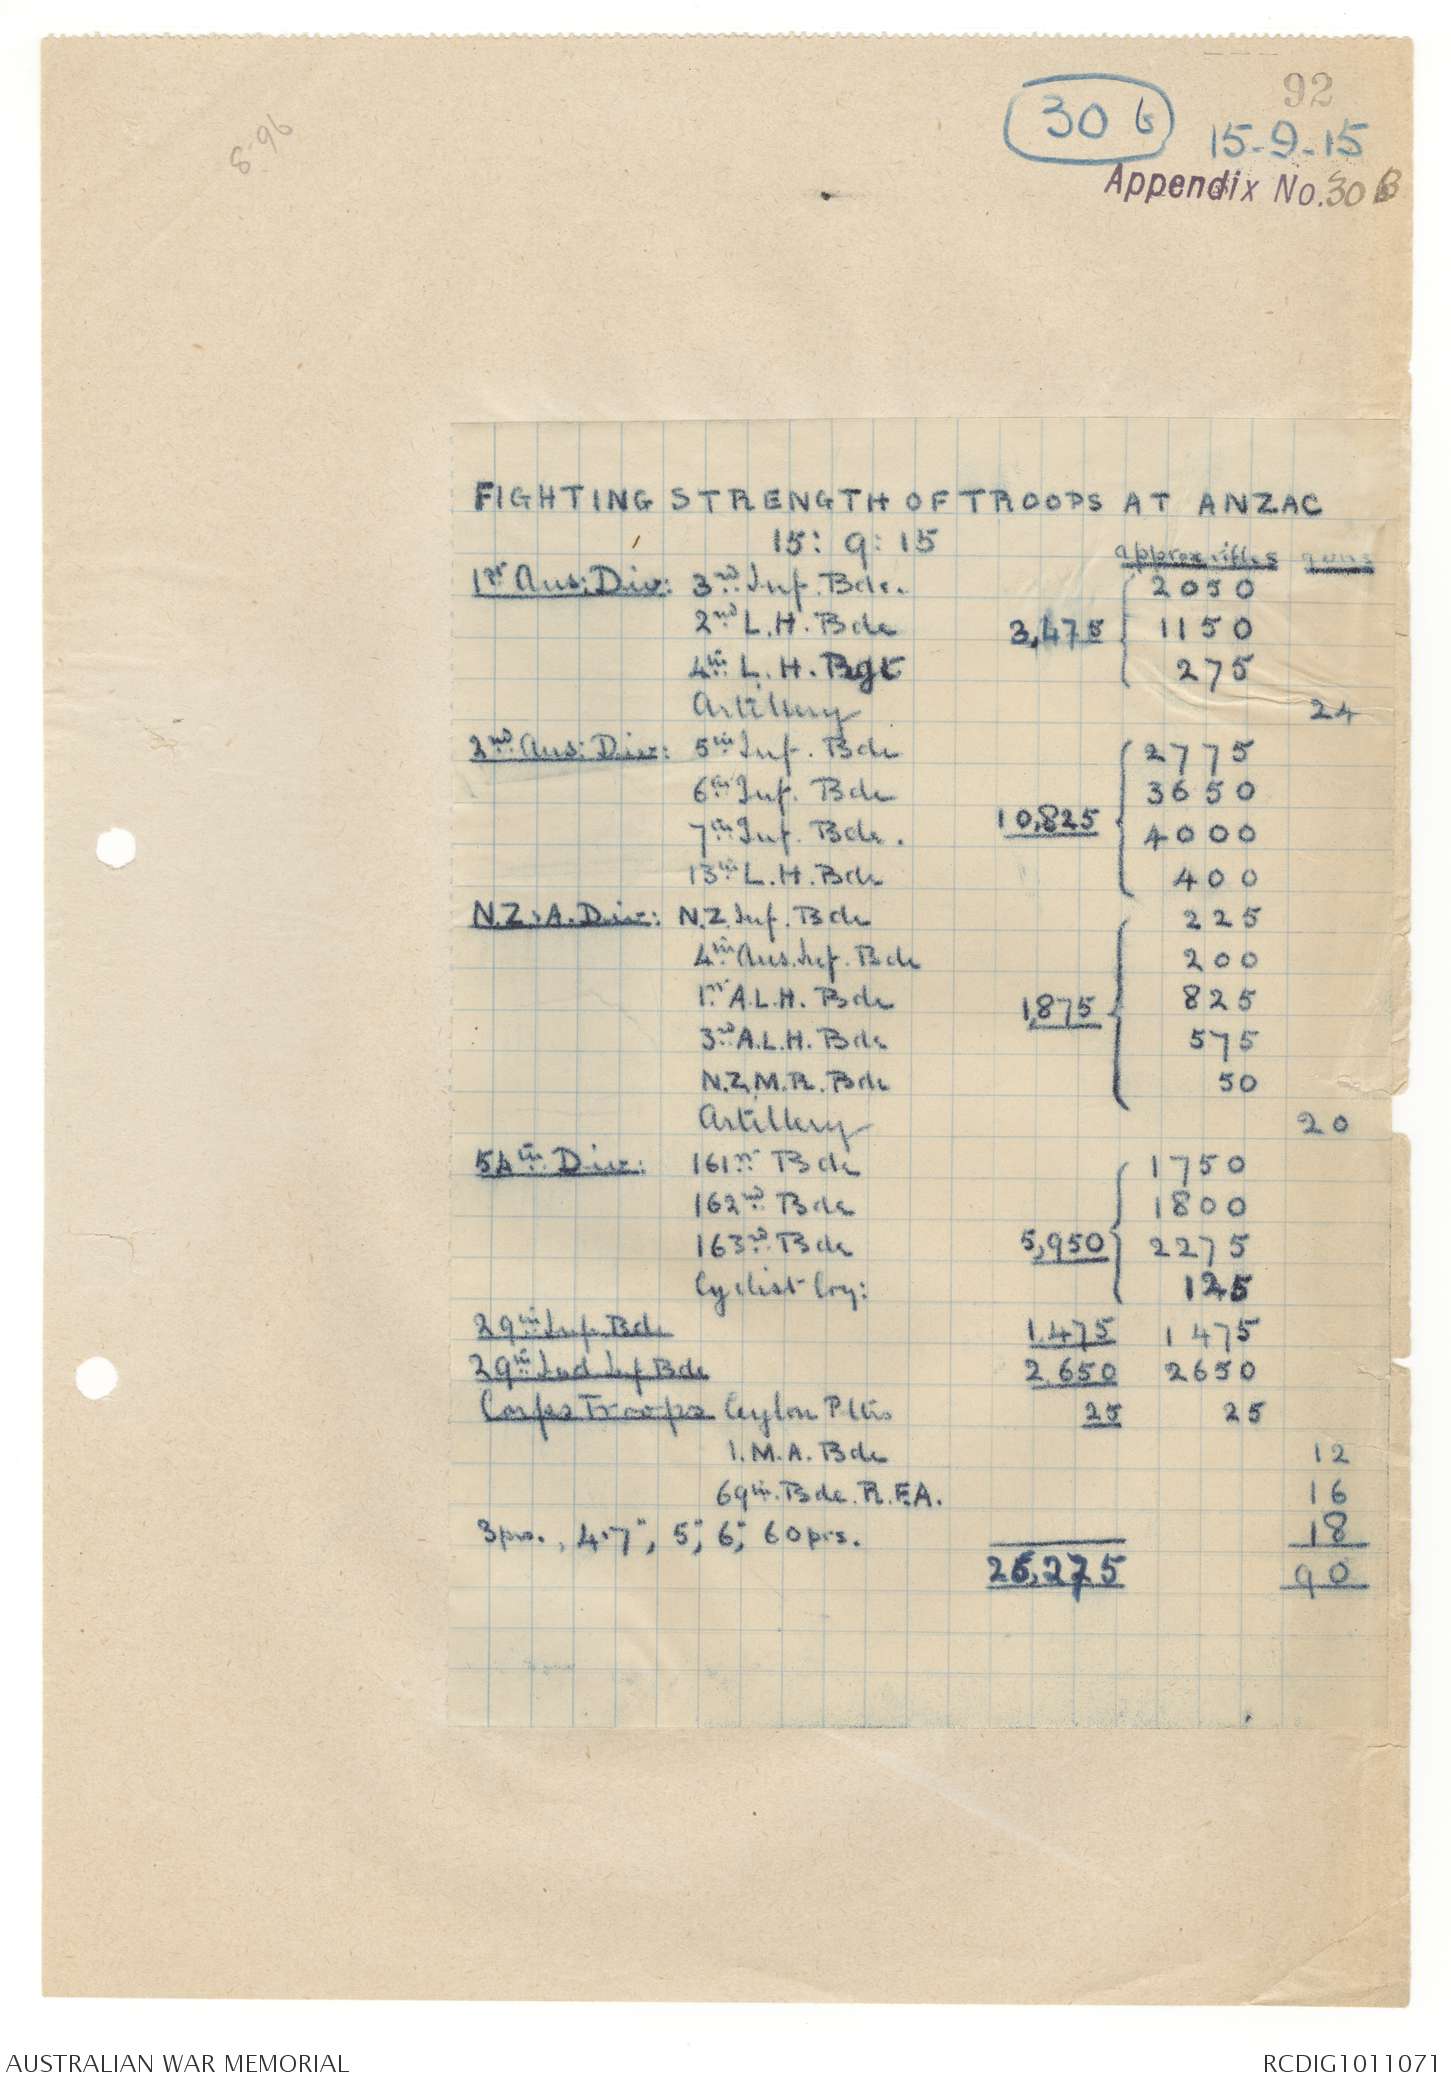 92
30 b
15-9-15
Appendix No. 30 B
8-96
FIGHTING STRENGTH OF TROOPS AT ANZAC
15: 9: 15
approx rifles guns
1st Aus: Div: 3rd Inf. Bde. 2050
2nd L.H. Bde 3,475 1150
4th L.H. Rgt 275
Artillery 24
2nd Aus: Div: 5th Inf. Bde 2775
6th Inf. Bde 3650
7th Inf. Bde. 10,825 4000
13th L.H. Bde 400
N.Z. & A. Div: N.Z. Inf. Bde 225
4th Aus. Inf. Bde 200
1st A.L.H. Bde 1,875 825
3rd A.L.H. Bde 575
N.Z.M.R. Bde 50
Artillery 20
54th Div: 161st Bde 1750
162nd Bde 1800
163rd Bde 5,950 2275
Cyclist Coy: 125
29th Inf. Bde 1,475 1475
29th Ind Inf Bde 2,650 2650
Corps Troops Ceylon Pltrs 25 25
I.M.A. Bde 12
69th. Bde. R.F.A. 16
3prs., 4.7", 5", 6", 60prs. 18
26,275 90
AUSTRALIAN WAR MEMORIAL RCDIG1011071